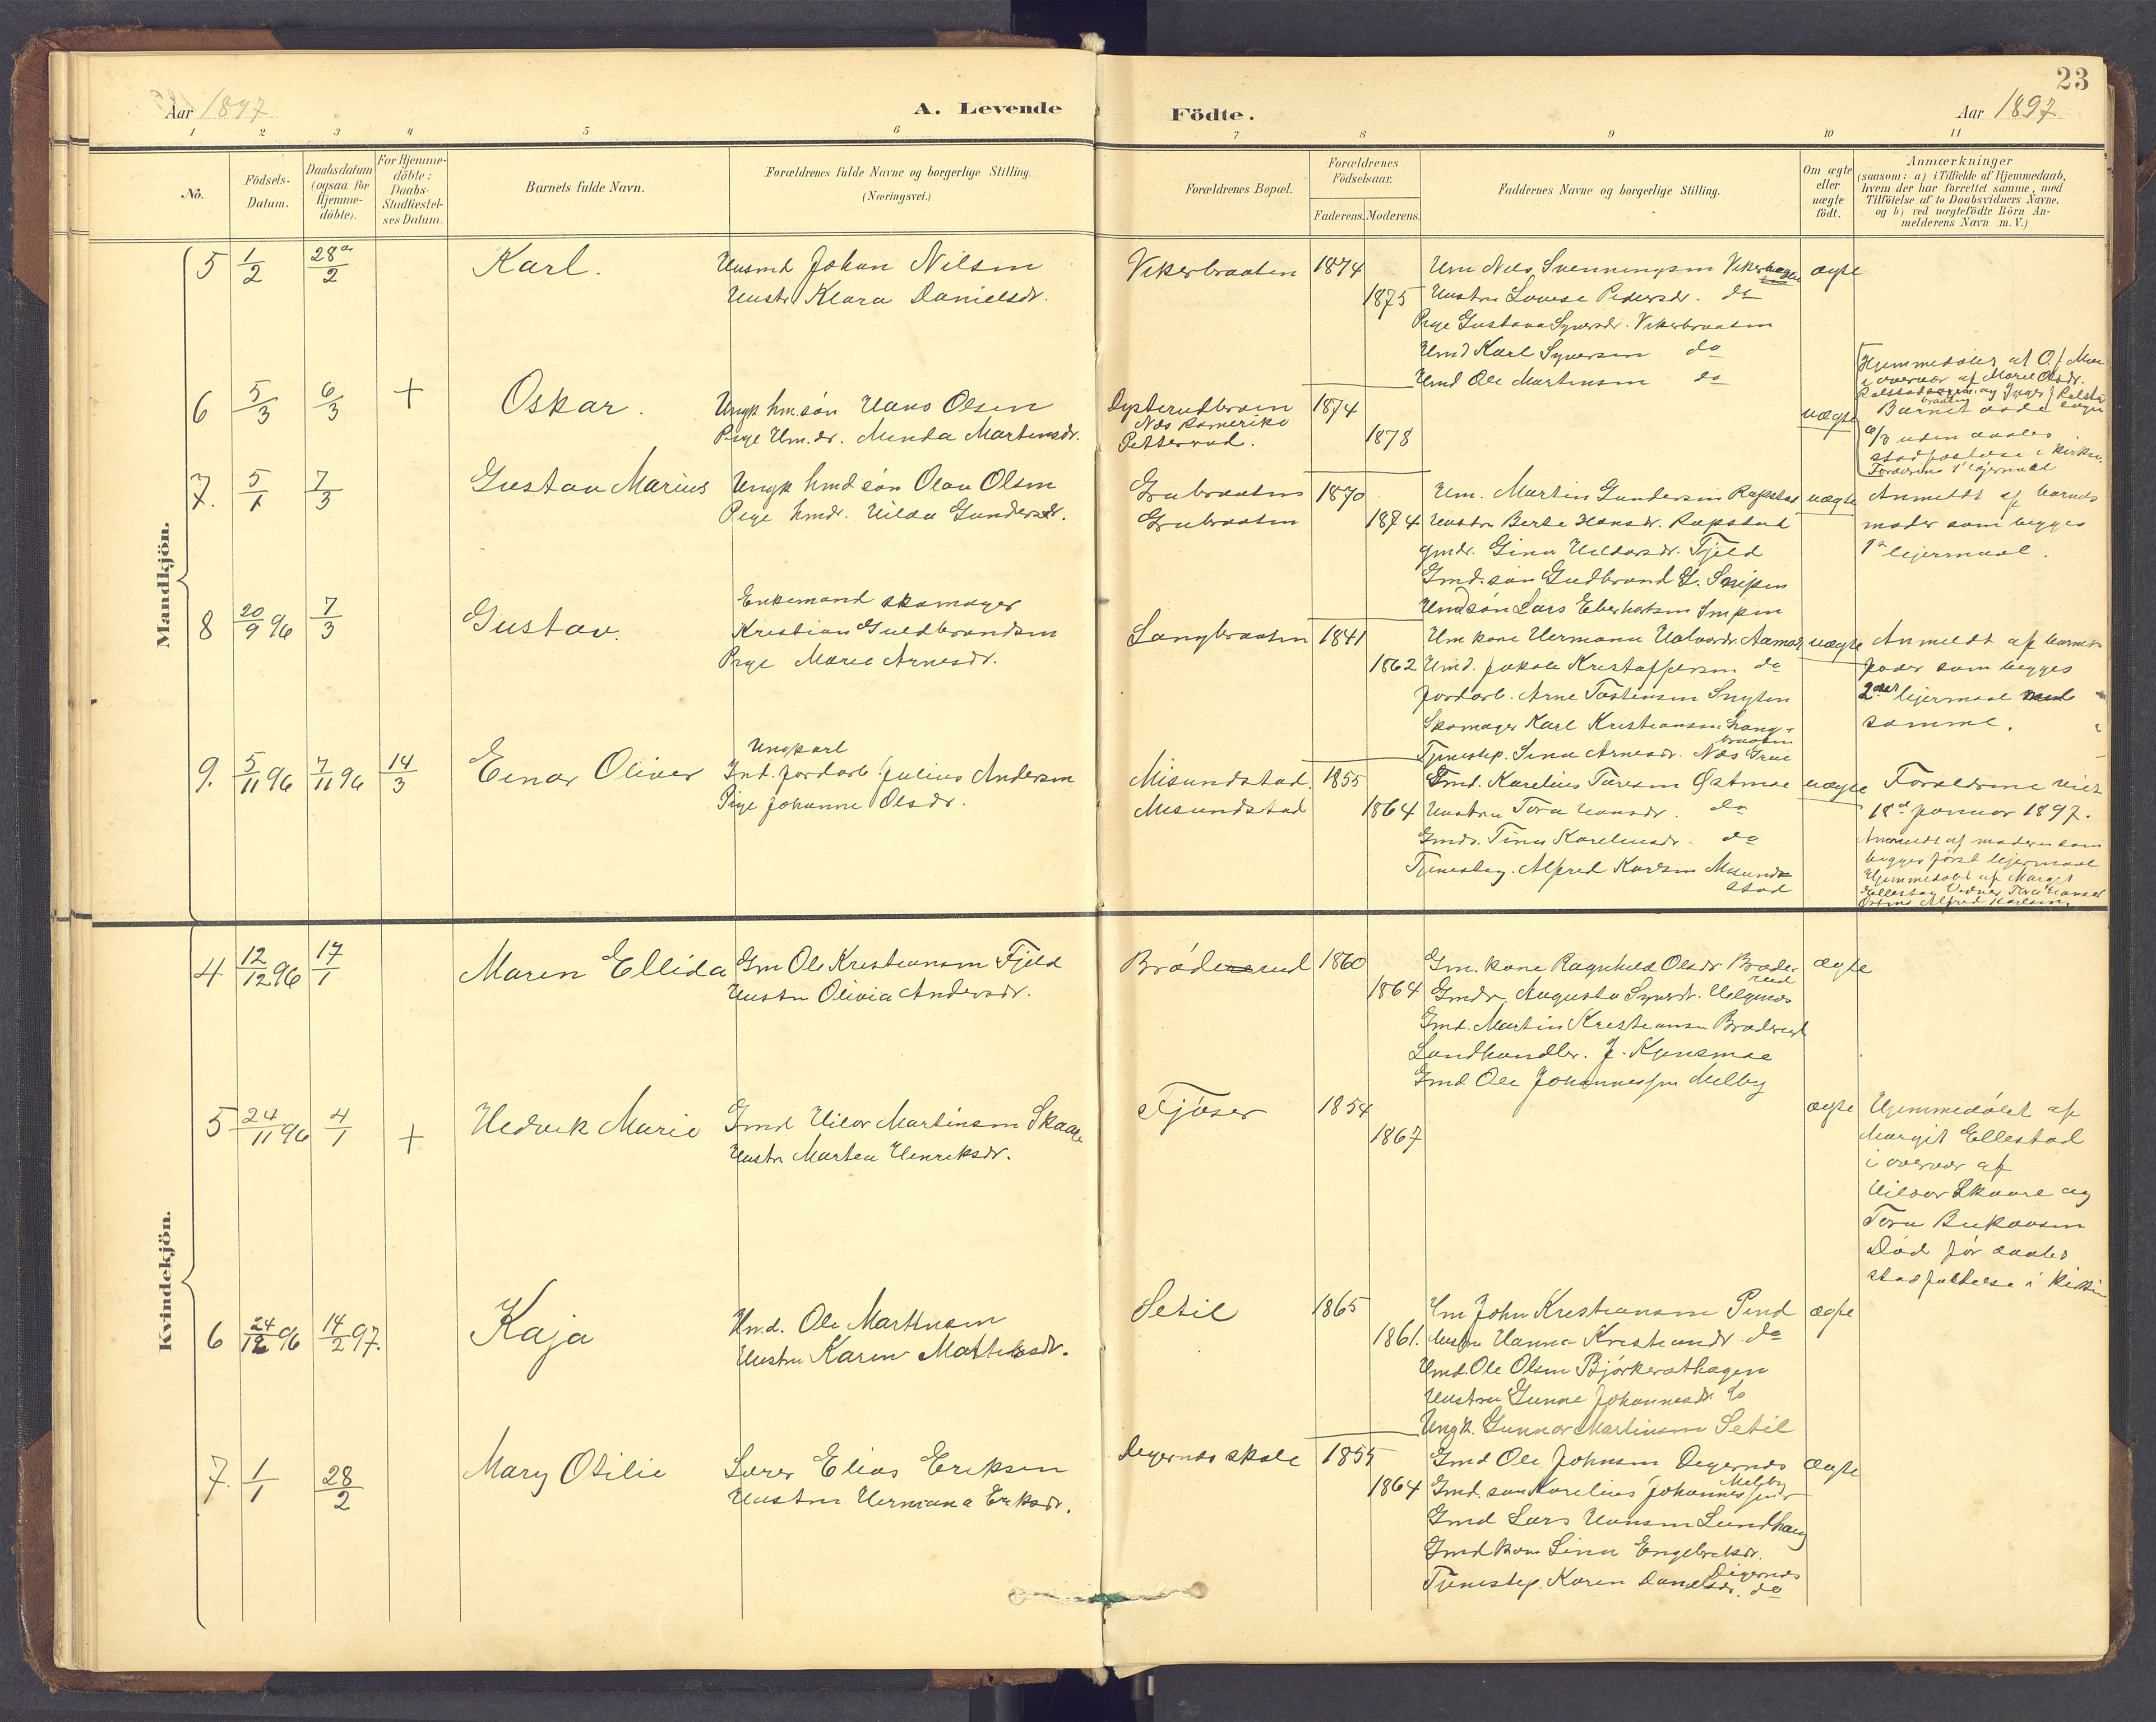 23
Aar 1897
A. Levende
Födte.
Aar 1897
1 2 3 4 5 6 7 8 9 10 11
No.
Födsels-
Datum.
Daabsdatum
(ogsaa for
Hjemme-
döbte).
For Hjemme-
döbte:
Daabs-
Stadfæstel-
ses Datum.
Barnets fulde Navn.
Forældrenes fulde Navne og borgerlige Stilling.
(Næringsvei.)
Forældrenes Bopæl.
Forældrenes
Födselsaar.
Faderens. Moderens.
Faddernes Navne og borgerlige Stilling.
Om ægte
eller
uægte
födt.
Anmærkninger
(saasom: a) i Tilfælde af Hjemmedaab,
hvem der har forrettet samme, med
Tilföielse af to Daabsvidners Navne,
og b) ved uægtefödte Börn An-
melderens Navn m. V.)
Mandkjön.
5 1/2 28/2 Karl.
Husmd Johan Nilsen
Hustr Klara Danielsdr.
Vikerbraaten 1874
1875
Hm Nils Svenningsen Vikerhagen
Hustru Lovise Pedersdr. do
Pige Gustava Syversdr. Vikerbraaten
Hmd Karl Syversen do
Hmd Ole Martinsen do
ægte
6 5/3 6/3 + Oskar.
Ungk hm.sön Hans Olsen
Pige Hm.dr. Minda Martinsdr.
Næs Romerike
Petterrud.
1874
1878
uægte
i overvær af Marie Olsdr.
Barnet döde
6/3 uden daabs
stadfæstelse i kirken.
Forældrenes 1ste leiermaal
7. 5/1 7/3 Gustav Marius
Ungk hmd sön Olav Olsen
Pige hmdr. Hilda Gundersdr.
Grubraaten
Grubraaten
1870
1874
Hm. Martin Gundersen Rapstad
Hustru Berte Hansdr. Rapstad
gmdr. Gina Hildorsdr. Fjeld
Gmd.sön Gudbrand G. Snipen
Hmd sön Lars Eberhartsen Snipen
uægte
Anmeldt af barnets
moder som begges
1ste leiermaal.
8 20/9 96 7/3 Gustav.
Enkemand skomager
Kristian Guldbrandsen
Pige Marie Arnesdr.
Langbraaten 1841
1862
Hm kone Hermana Halvordr. Aamot
Hmd. Jakob Kristoffersen do
Jordarb. Arne Tostensen
Skomager Karl Kristiansen Lang-
braaten
Tjenestep. Lina Arnesdr. Næs Grue
uægte
Anmeldt af barnets
fader som begges
2det leiermaal med
samme.
9. 5/11 96 7/11 96 14/3 Einar Oliver
Ungkarl
Ind. jordarb. Julius Andersen
Pige Johanne Olsdr.
Misundstad.
Misundstad
1855
1864
Gmd. Karelius Turesen Östmoe
Hustru Tora Hansdr. do
Gmdr. Tina Kareliusdr. do
Tjenesteg. Alfred Karlsen Misund-
stad
uægte
Forældrene viet
18de januar 1897.
Anmeldt af moderen som
begges förste leiermaal
Hjemmedöbt af Margit
Ellestad Vidner Tora Hansdr
Östmo Alfred Karlsen.
Kvindekjön.
4 12/12 96 17/1 Maren Ellida
Gm Ole Kristiansen Fjeld
Hustru Olivia Andersdr.
Bröderud 1860
1864
Gm. kone Ragnhild Olsdr Bröde-
rud
Gmdr. Augusta Syversdr. Helgenæs
Gmd. Martin Kristiansen Bröderud
Landhandler. J. Kjensmoe
Gmd Ole Johannessen Melby
ægte
5 24/11 96 4/1 + Hedvik Marie
Gmd Hilor Martinsen Skaare
Hustr Martea Henriksdr.
Fjöser 1854
1867
ægte
Hjemmedöbt af
Margit Ellestad
i overvær af
Hildor Skaare og
Tora Bukaasen
Död för daabs
stadfæstelse i kirken
6 24/12 96 14/2 97. Kaja
Hmd. Ole Martinsen
Hustru Karen Mattisdr.
Setil 1865
1861.
Hm John Kristiansen Pind
Hustru Hanna Kristiansdr. do
Hmd. Ole Olsen Björkerothagen
Hustru Gunne Johannesdr. do
Ungk. Gunnar Martinsen Setil
ægte
7. 1/1 28/2 Mary Otilie
Lærer Elias Eriksen
Hustru Hermana Eriksdr.
Degernæs skole 1855
1864
Gmd Ole Johnsen Degernæs
Gmd. sön Karelius Johannessen
Melby
Gmd Lars Hansen Lundhaug
Gmd kone Lina Engebretsdr.
Degernæs
Tjenestep. Karen Danielsdr. do
ægte